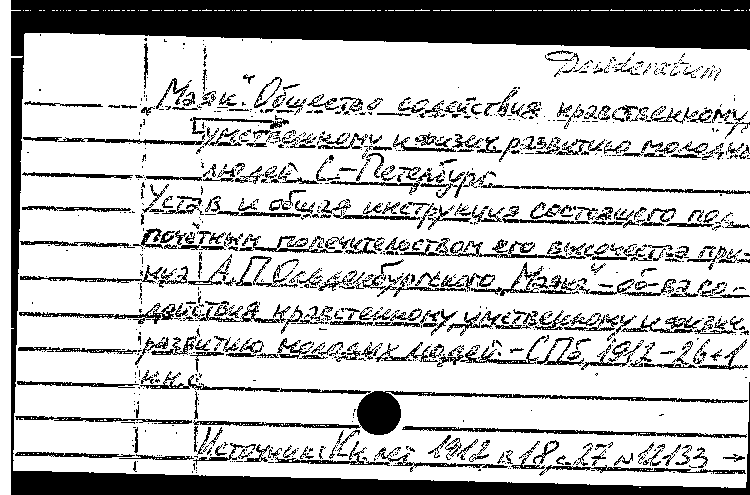 Desideratum
„Маяк". Общество содействия нравственному,
умственному и физич. развитию молодых
людей. С.-Петербург.
Устав и общая инструкция состоящего под
почетным попечительством его высочества прин-
ца А.П. Ольденбургского „Маяка" – об-ва со-
действия нравственному, умственному и физич.
развитию молодых людей. – СПб, 1912 – 26+1
н.н.с.
Источник: Кн. лет, 1912, № 18, с. 27, № 12133 →